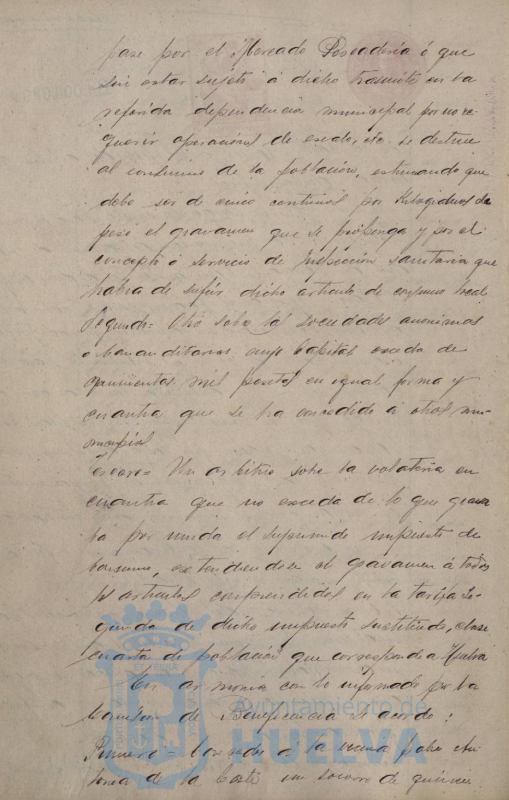 pase por el Mercado Pescadería ó que
sin estar sujeto á dicho trámite en la
referida dependencia municipal por no re
querir operaciones de escaldo, etc. se destine
al consumo de la población, estimando que
debe ser de cinco centimos por Kilogramo de
peso el gravamen que se proponga y por el
concepto ó servicio de inspección sanitaria que
habia de sufrir dicho articulo de consumo local
Segundo: Otro sobre las sociedades anonimas
o comanditarias cuyo Capital exceda de
quinientas mil pesetas en igual forma y
cuantia que se ha concedido á otros mu-
nicipios
Tercero = Un arbitrio sobre la volateria en
cuantia que no exceda de lo que grava
ba por unidad el suprimido impuesto de
consumo, extendiendose el gravamen á todos
los articulos comprendidos en la tarifa se-
gunda de dicho impuesto sustituido, clase
cuarta de población que corresponde a Huelva
En armonia con lo informado por la
Comision de Beneficencia se acordó:
Primero = Conceder á la
de la un socorro de quince
Ayuntamiento de
HUELVA